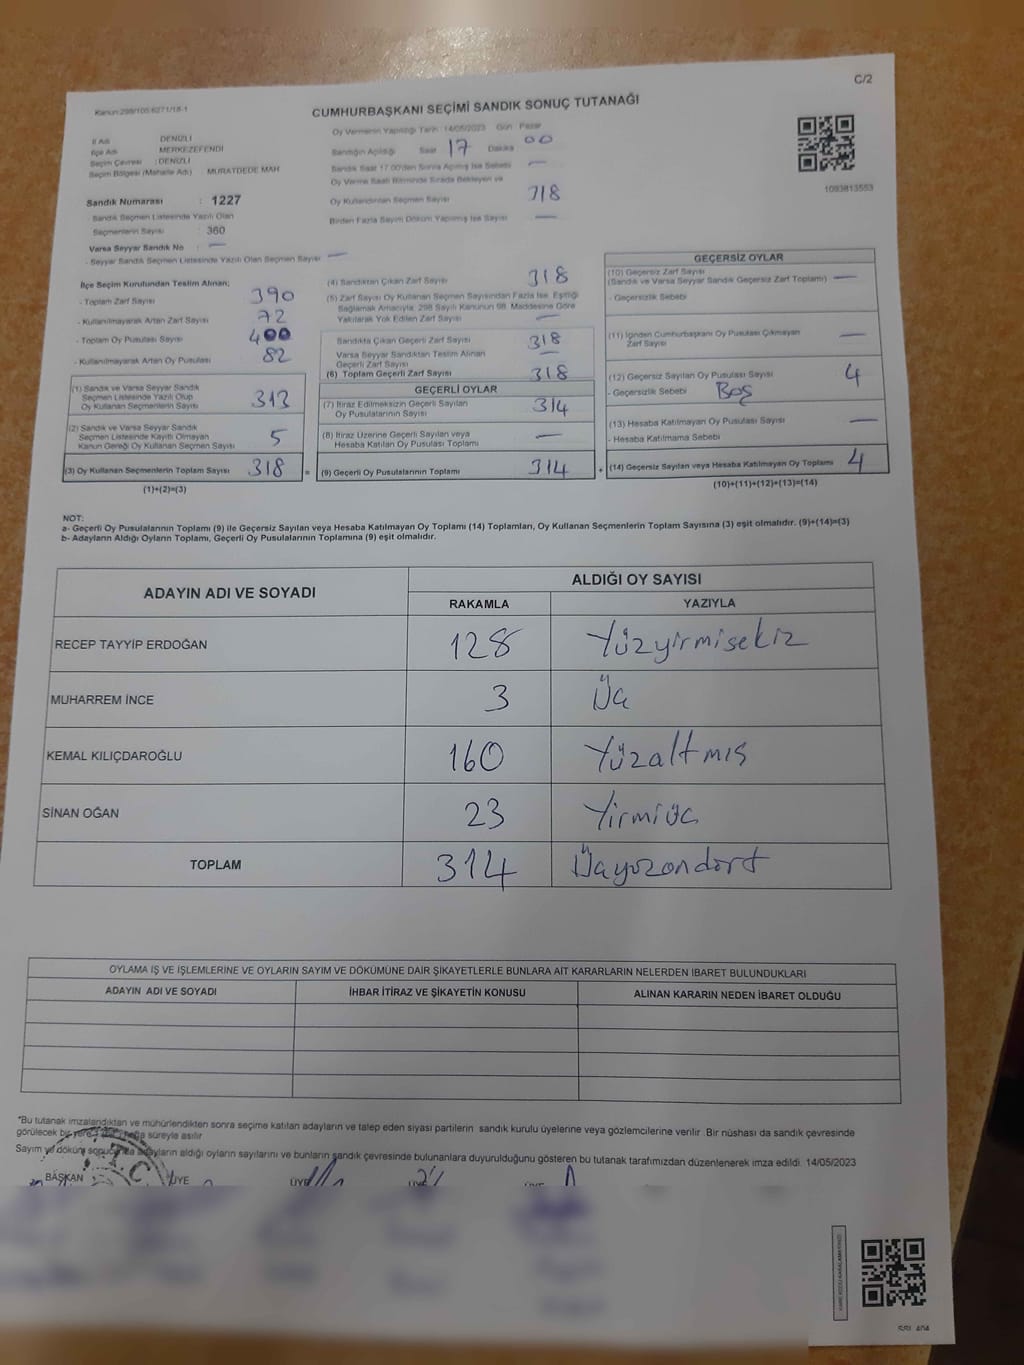 C/2
Kanun:298/105.6271/18-1
CUMHURBAŞKANI SEÇİMİ SANDIK SONUÇ TUTANAĞI
İl Adı DENİZLİ
İlçe Adı MERKEZEFENDİ
Seçim Çevresi : DENİZLİ
Seçim Bölgesi (Mahalle Adı) : MURATDEDE MAH
Sandık Numarası : 1227
- Sandık Seçmen Listesinde Yazılı Olan
Seçmenlerin Sayısı : 360
Varsa Seyyar Sandık No : —
- Seyyar Sandık Seçmen Listesinde Yazılı Olan Seçmen Sayısı —
Oy Vermenin Yapıldığı Tarih : 14/05/2023 Gün : Pazar
Sandığın Açıldığı Saat 17 Dakika 00
Sandık Saat 17.00'den Sonra Açılmış İse Sebebi —
Oy Verme Saati Bitiminde Sırada Bekleyen ve
Oy Kullandırılan Seçmen Sayısı 318
Birden Fazla Sayım Döküm Yapılmış İse Sayısı —
1093813553
İlçe Seçim Kurulundan Teslim Alınan;
- Toplam Zarf Sayısı 390
- Kullanılmayarak Artan Zarf Sayısı 72
- Toplam Oy Pusulası Sayısı 400
- Kullanılmayarak Artan Oy Pusulası 82
(1) Sandık ve Varsa Seyyar Sandık
Seçmen Listesinde Yazılı Olup
Oy Kullanan Seçmenlerin Sayısı 313
(2) Sandık ve Varsa Seyyar Sandık
Seçmen Listesinde Kayıtlı Olmayan
Kanun Gereği Oy Kullanan Seçmen Sayısı 5
(3) Oy Kullanan Seçmenlerin Toplam Sayısı 318 =
(1)+(2)=(3)
(4) Sandıktan Çıkan Zarf Sayısı 318
(5) Zarf Sayısı Oy Kullanan Seçmen Sayısından Fazla İse, Eşitliği
Sağlamak Amacıyla, 298 Sayılı Kanunun 98. Maddesine Göre
Yakılarak Yok Edilen Zarf Sayısı —
Sandıkta Çıkan Geçerli Zarf Sayısı 318
Varsa Seyyar Sandıktan Teslim Alınan
Geçerli Zarf Sayısı —
(6) Toplam Geçerli Zarf Sayısı 318
GEÇERLİ OYLAR
(7) İtiraz Edilmeksizin Geçerli Sayılan
Oy Pusulalarının Sayısı 314
(8) İtiraz Üzerine Geçerli Sayılan veya
Hesaba Katılan Oy Pusulası Toplamı —
(9) Geçerli Oy Pusulalarının Toplamı 314 +
GEÇERSİZ OYLAR
(10) Geçersiz Zarf Sayısı
(Sandık ve Varsa Seyyar Sandık Geçersiz Zarf Toplamı) —
- Geçersizlik Sebebi
(11) İçinden Cumhurbaşkanı Oy Pusulası Çıkmayan
Zarf Sayısı —
(12) Geçersiz Sayılan Oy Pusulası Sayısı 4
- Geçersizlik Sebebi Boş
(13) Hesaba Katılmayan Oy Pusulası Sayısı —
- Hesaba Katılmama Sebebi
(14) Geçersiz Sayılan veya Hesaba Katılmayan Oy Toplamı 4
(10)+(11)+(12)+(13)=(14)
NOT:
a- Geçerli Oy Pusulalarının Toplamı (9) ile Geçersiz Sayılan veya Hesaba Katılmayan Oy Toplamı (14) Toplamları, Oy Kullanan Seçmenlerin Toplam Sayısına (3) eşit olmalıdır. (9)+(14)=(3)
b- Adayların Aldığı Oyların Toplamı, Geçerli Oy Pusulalarının Toplamına (9) eşit olmalıdır.
ADAYIN ADI VE SOYADI ALDIĞI OY SAYISI
RAKAMLA YAZIYLA
RECEP TAYYİP ERDOĞAN 128 Yüzyirmisekiz
MUHARREM İNCE 3 Üç
KEMAL KILIÇDAROĞLU 160 Yüzaltmış
SİNAN OĞAN 23 Yirmiüç
TOPLAM 314 Üçyüzondört
OYLAMA İŞ VE İŞLEMLERİNE VE OYLARIN SAYIM VE DÖKÜMÜNE DAİR ŞİKAYETLERLE BUNLARA AİT KARARLARIN NELERDEN İBARET BULUNDUKLARI
ADAYIN ADI VE SOYADI İHBAR İTİRAZ VE ŞİKAYETİN KONUSU ALINAN KARARIN NEDEN İBARET OLDUĞU
*Bu tutanak imzalandıktan ve mühürlendikten sonra seçime katılan adayların ve talep eden siyasi partilerin sandık kurulu üyelerine veya gözlemcilerine verilir. Bir nüshası da sandık çevresinde
görülecek bir yere süreyle asılır
Sayım ve döküm sonucunda adayların aldığı oyların sayılarını ve bunların sandık çevresinde bulunanlara duyurulduğunu gösteren bu tutanak tarafımızdan düzenlenerek imza edildi. 14/05/2023
T.C
BAŞKAN ÜYE ÜYE